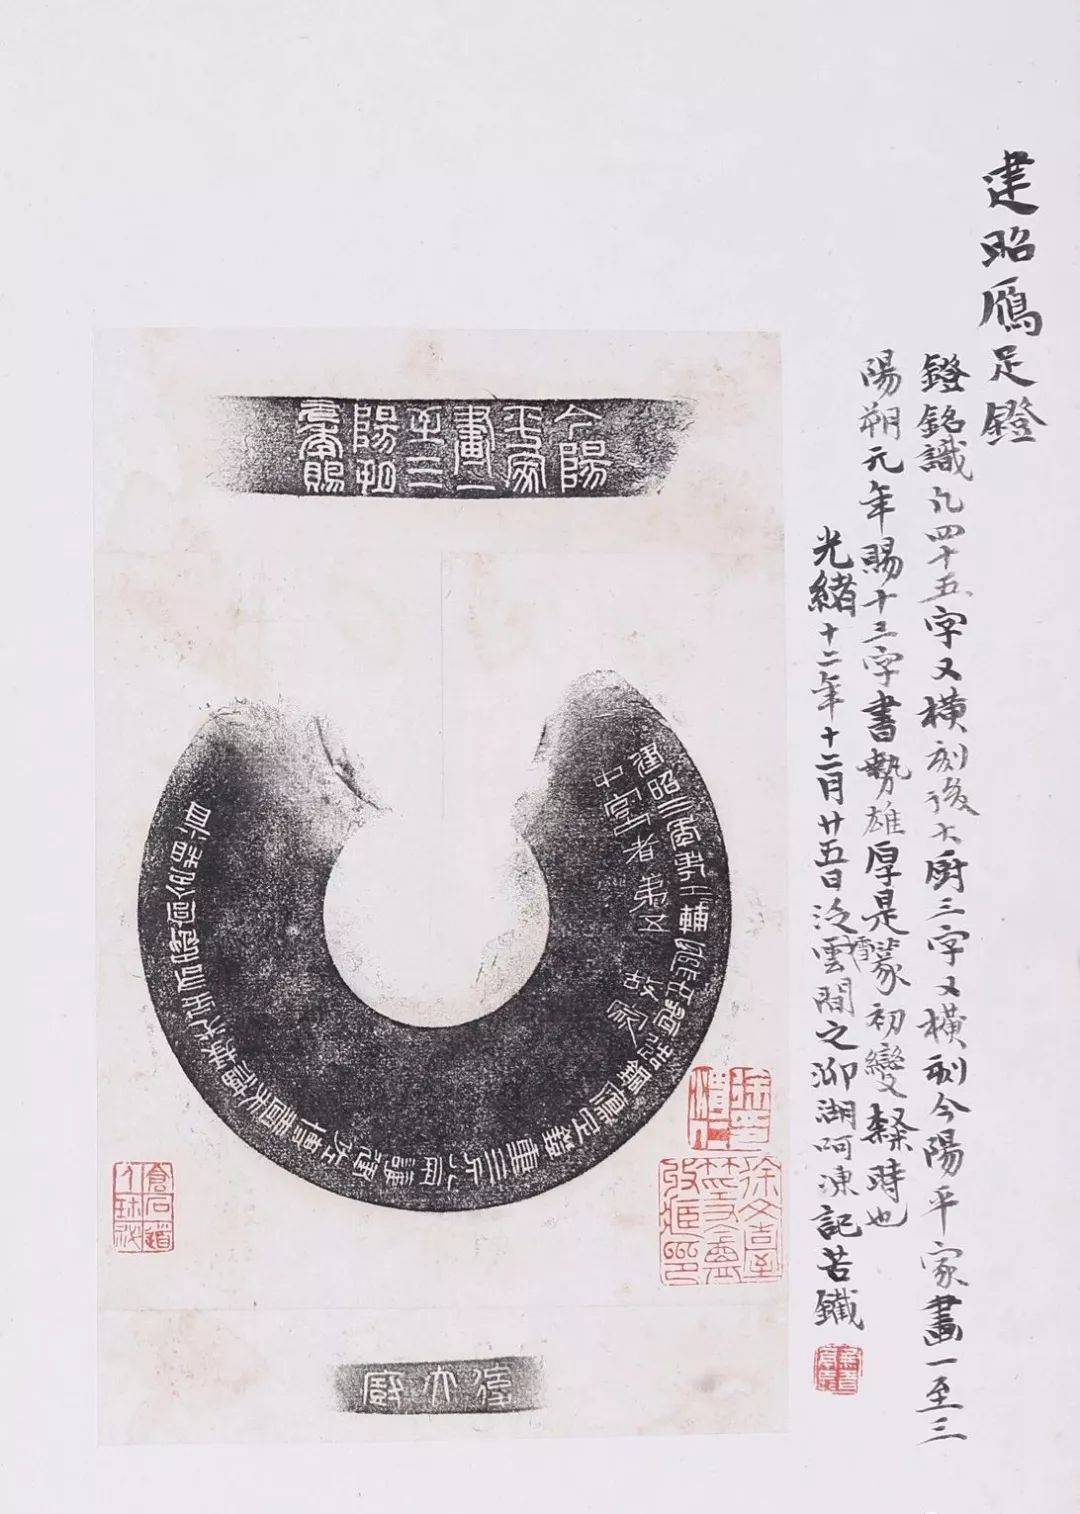 建昭鴈足鐙
鐙銘識凡四十五字又橫刻後大廚三字又橫刻今陽平家畫一至三
陽朔元年賜十三字書勢雄厚是篆初變隸時也
光緒十二年十二月廿五日泛雲間之泖湖呵凍記苦鐵
今陽
平家
畫一
至三
陽朔
元年賜
建昭三年考工輔爲內者造銅鴈足鐙重三斤八兩護建佐博嗇夫福掾光主右丞宮令相省
中宮內者第五 故家
後大廚
徐渭仁印
徐文臺竺友盦收臧印
倉石道人珍祕